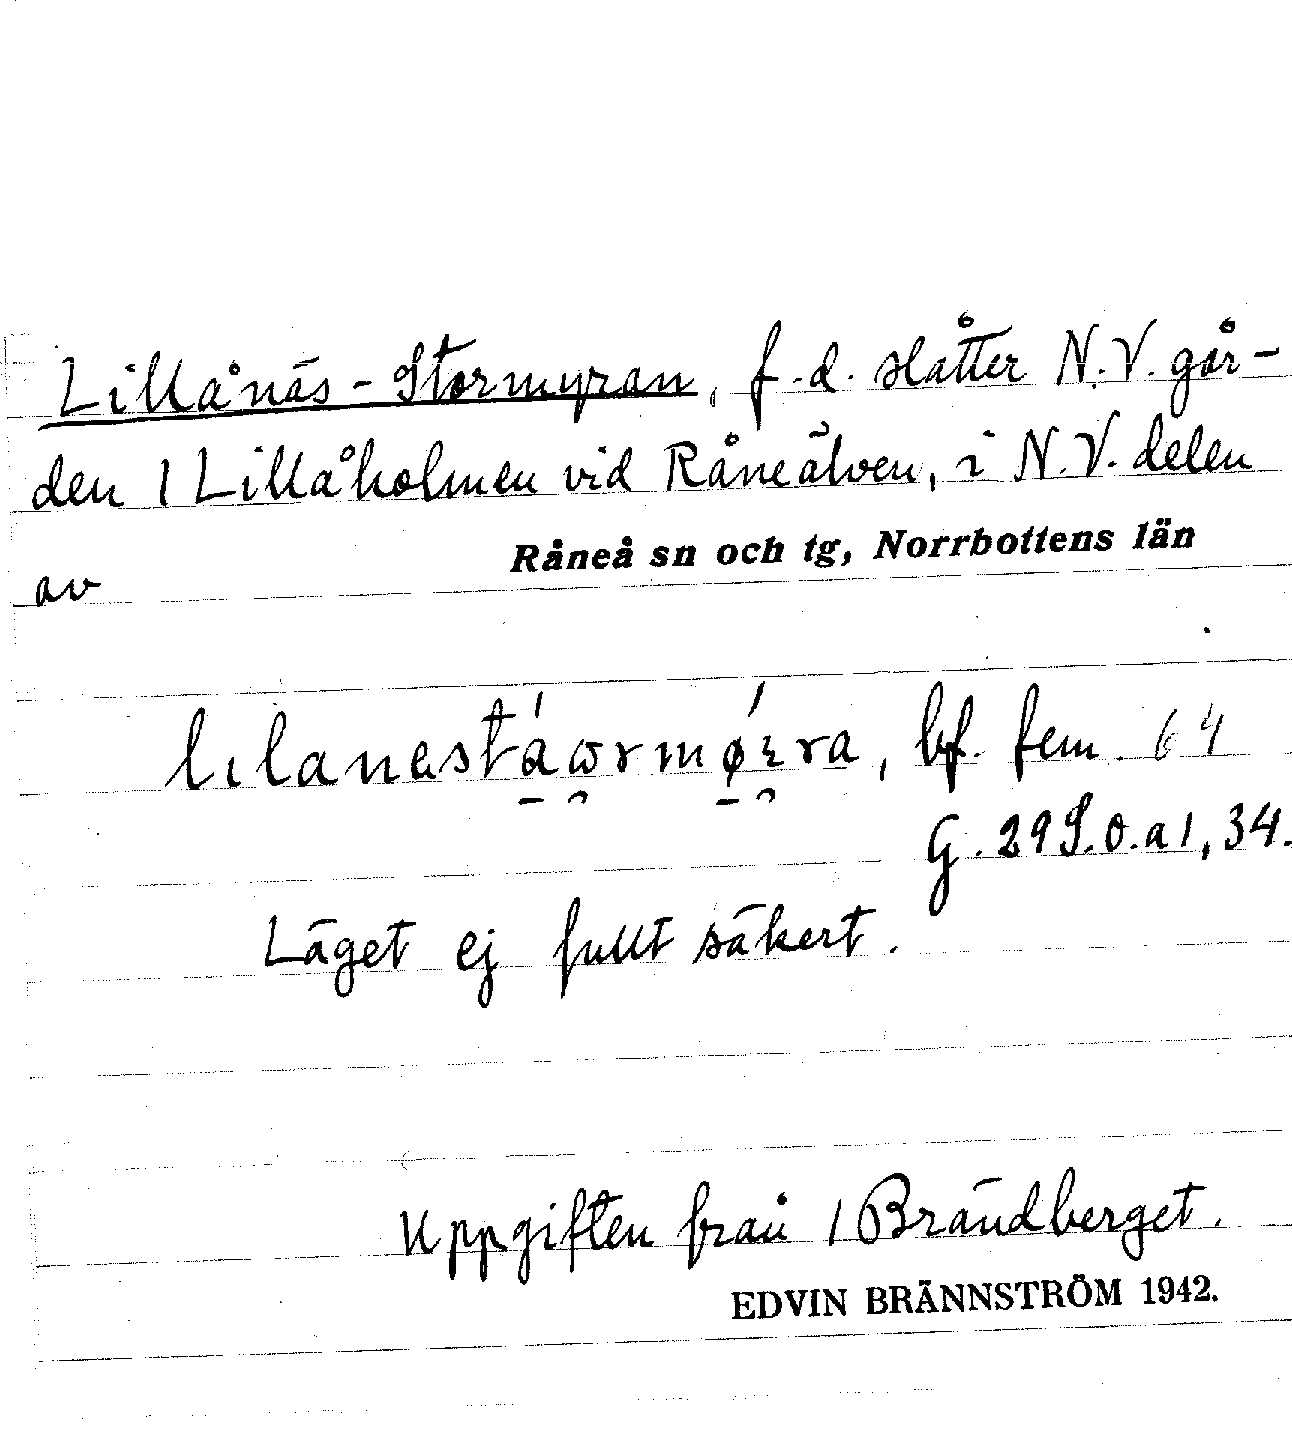 Lillånäs-Stormyran, f.d. slåtter N.V. går-
den 1 Lillåholmen vid Råneälven, i N.V. delen
Råneå sn och tg, Norrbottens län
av
lılanastáωrmǿɩra, bf. fem. 64
G. 29 S.O.a1, 34.
Läget ej fullt säkert.
Uppgiften från 1 Brändberget.
EDVIN BRÄNNSTRÖM 1942.